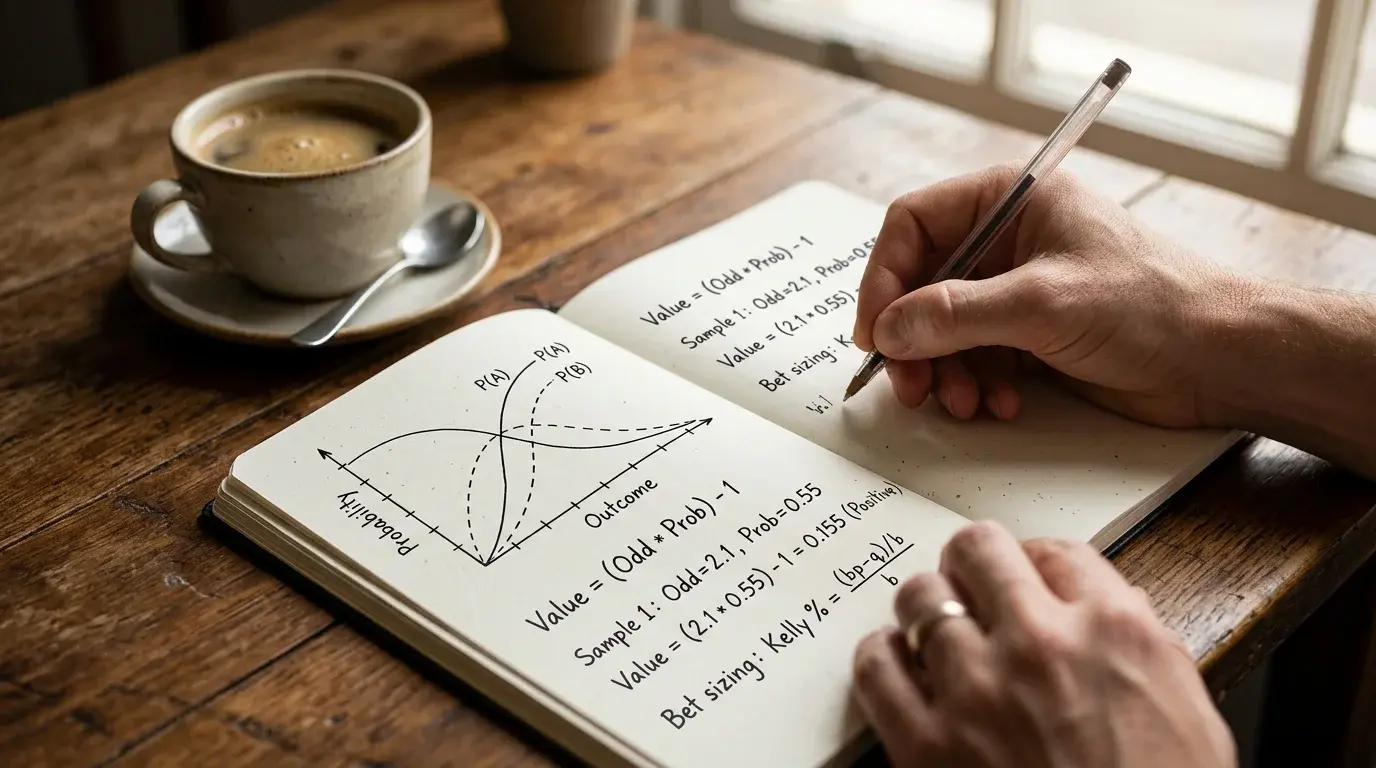 P(A)
P(A)
P(B)
Probability
Outcome
Value = (Odd * Prob) - 1
Sample 1: Odd=2.1, Prob=0.55
Value = (2.1 * 0.55) - 1 = 0.155 (Positive)
Bet sizing: Kelly % = (bp-q)/b
b
Value = (Odd * Prob) - 1
Sample 1: Odd=2.1, Prob=0.55
Value = (2.1 * 0.55) -
Bet sizing: